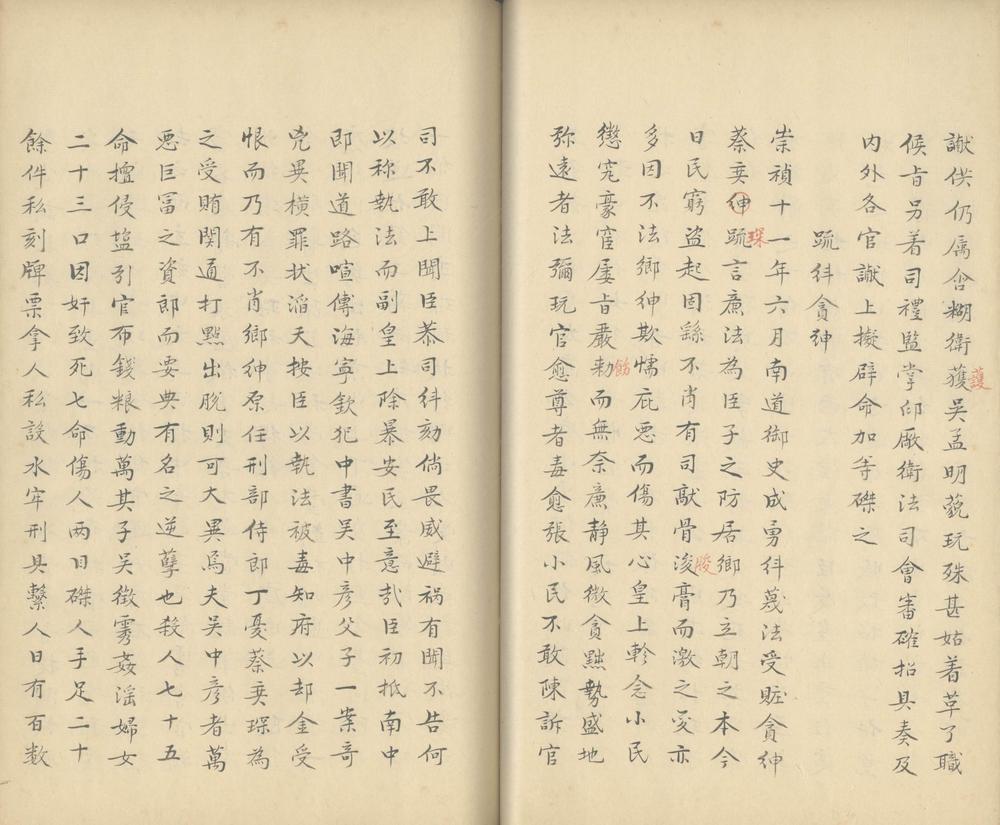 讞供仍属含糊衛獲吴孟明藐玩殊甚姑着草了職
護
候㫖另着司禮監掌印厰衛法司會審確招具奏及
内外各官讞上擬辟命加等磔之
䟽糾貪𥿄
崇禎十一年六月南道御史成勇糾蔑法受賍貪紳
蔡奕紳䟽言亷法為臣子之防居鄉乃立朝之本今
琛
日民窮盗起固繇不肖有司敲骨浚膏而激之变亦
朘
多因不法鄉紳欺懦庇惡而傷其心皇上軫念小民
懲究豪宦屡㫖嚴勅而無奈亷静風微貪黷勢盛地
飭
弥遠者法彌玩官愈尊者毒愈張小民不敢陳訴官
司不敢上聞臣恭司糾劾倘畏威避禍有聞不告何
以称執法而副皇上除暴安民至意㢤臣初抵南中
即聞道路喧傳海寧欽犯中書吴中彦父子一案竒
兇異横罪状滔天按臣以執法被毒知府以却金受
恨而乃有不肖鄉紳原任刑部侍郎丁憂蔡奕琛為
之受賄関通打點出脱則可大異焉夫吴中彦者萬
惡巨冨之資郎而要典有名之逆孽也殺人七十五
命擅侵盐引官布錢粮動萬其子吴徵雱姦滛婦女
二十三口因奸致死七命傷人两目磔人手足二十
餘件私刻牌票拿人私設水牢刑具繫人日有百数